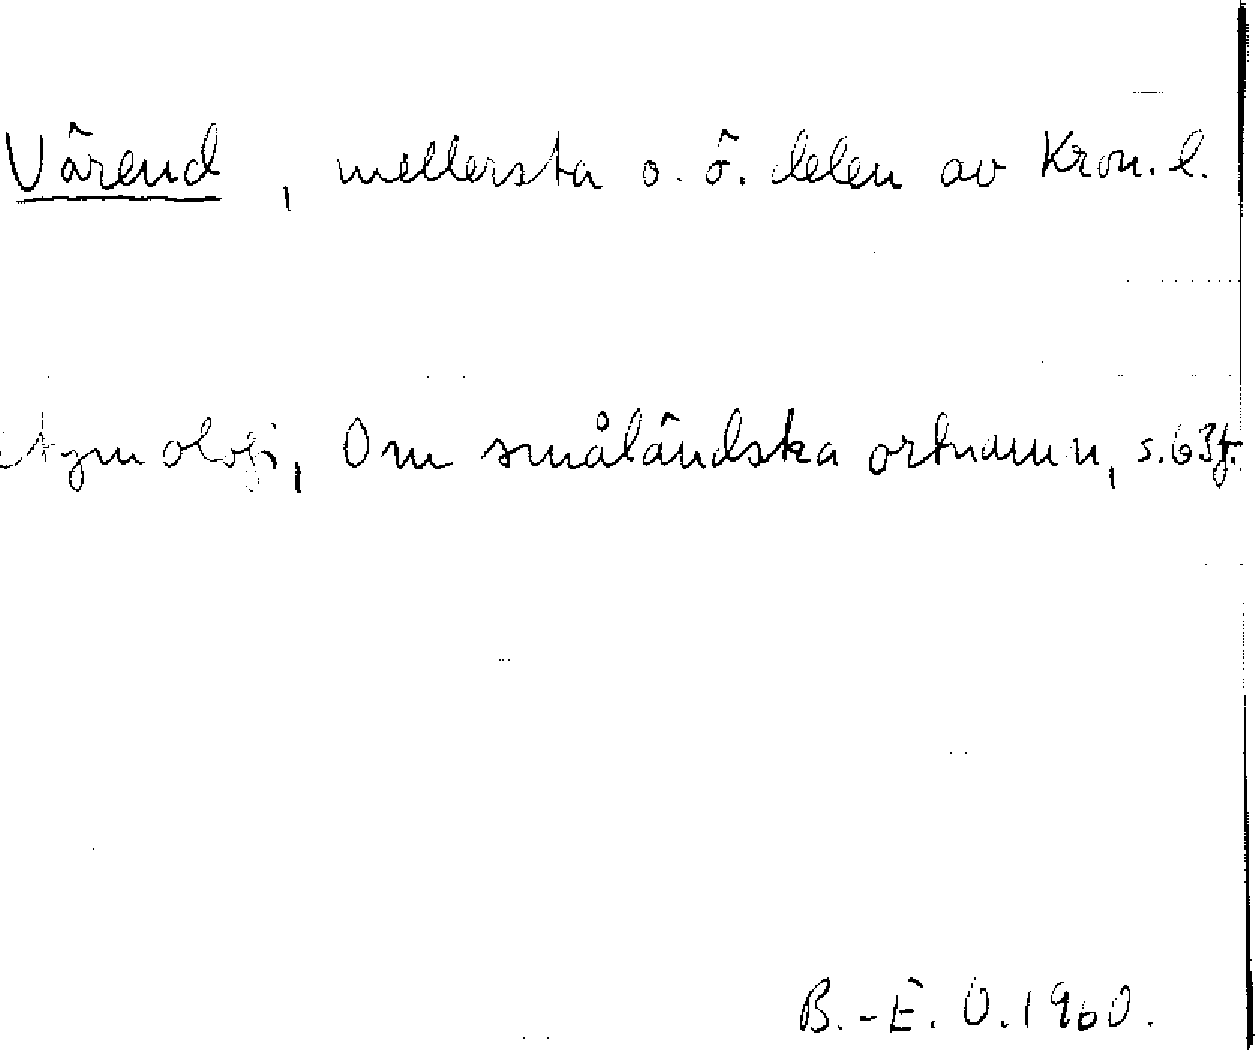 Värend, mellersta o. ö. delen av Kron. l.
etymologi, Om småländska ortnamn, s. 63f.
B.-E. O. 1960.